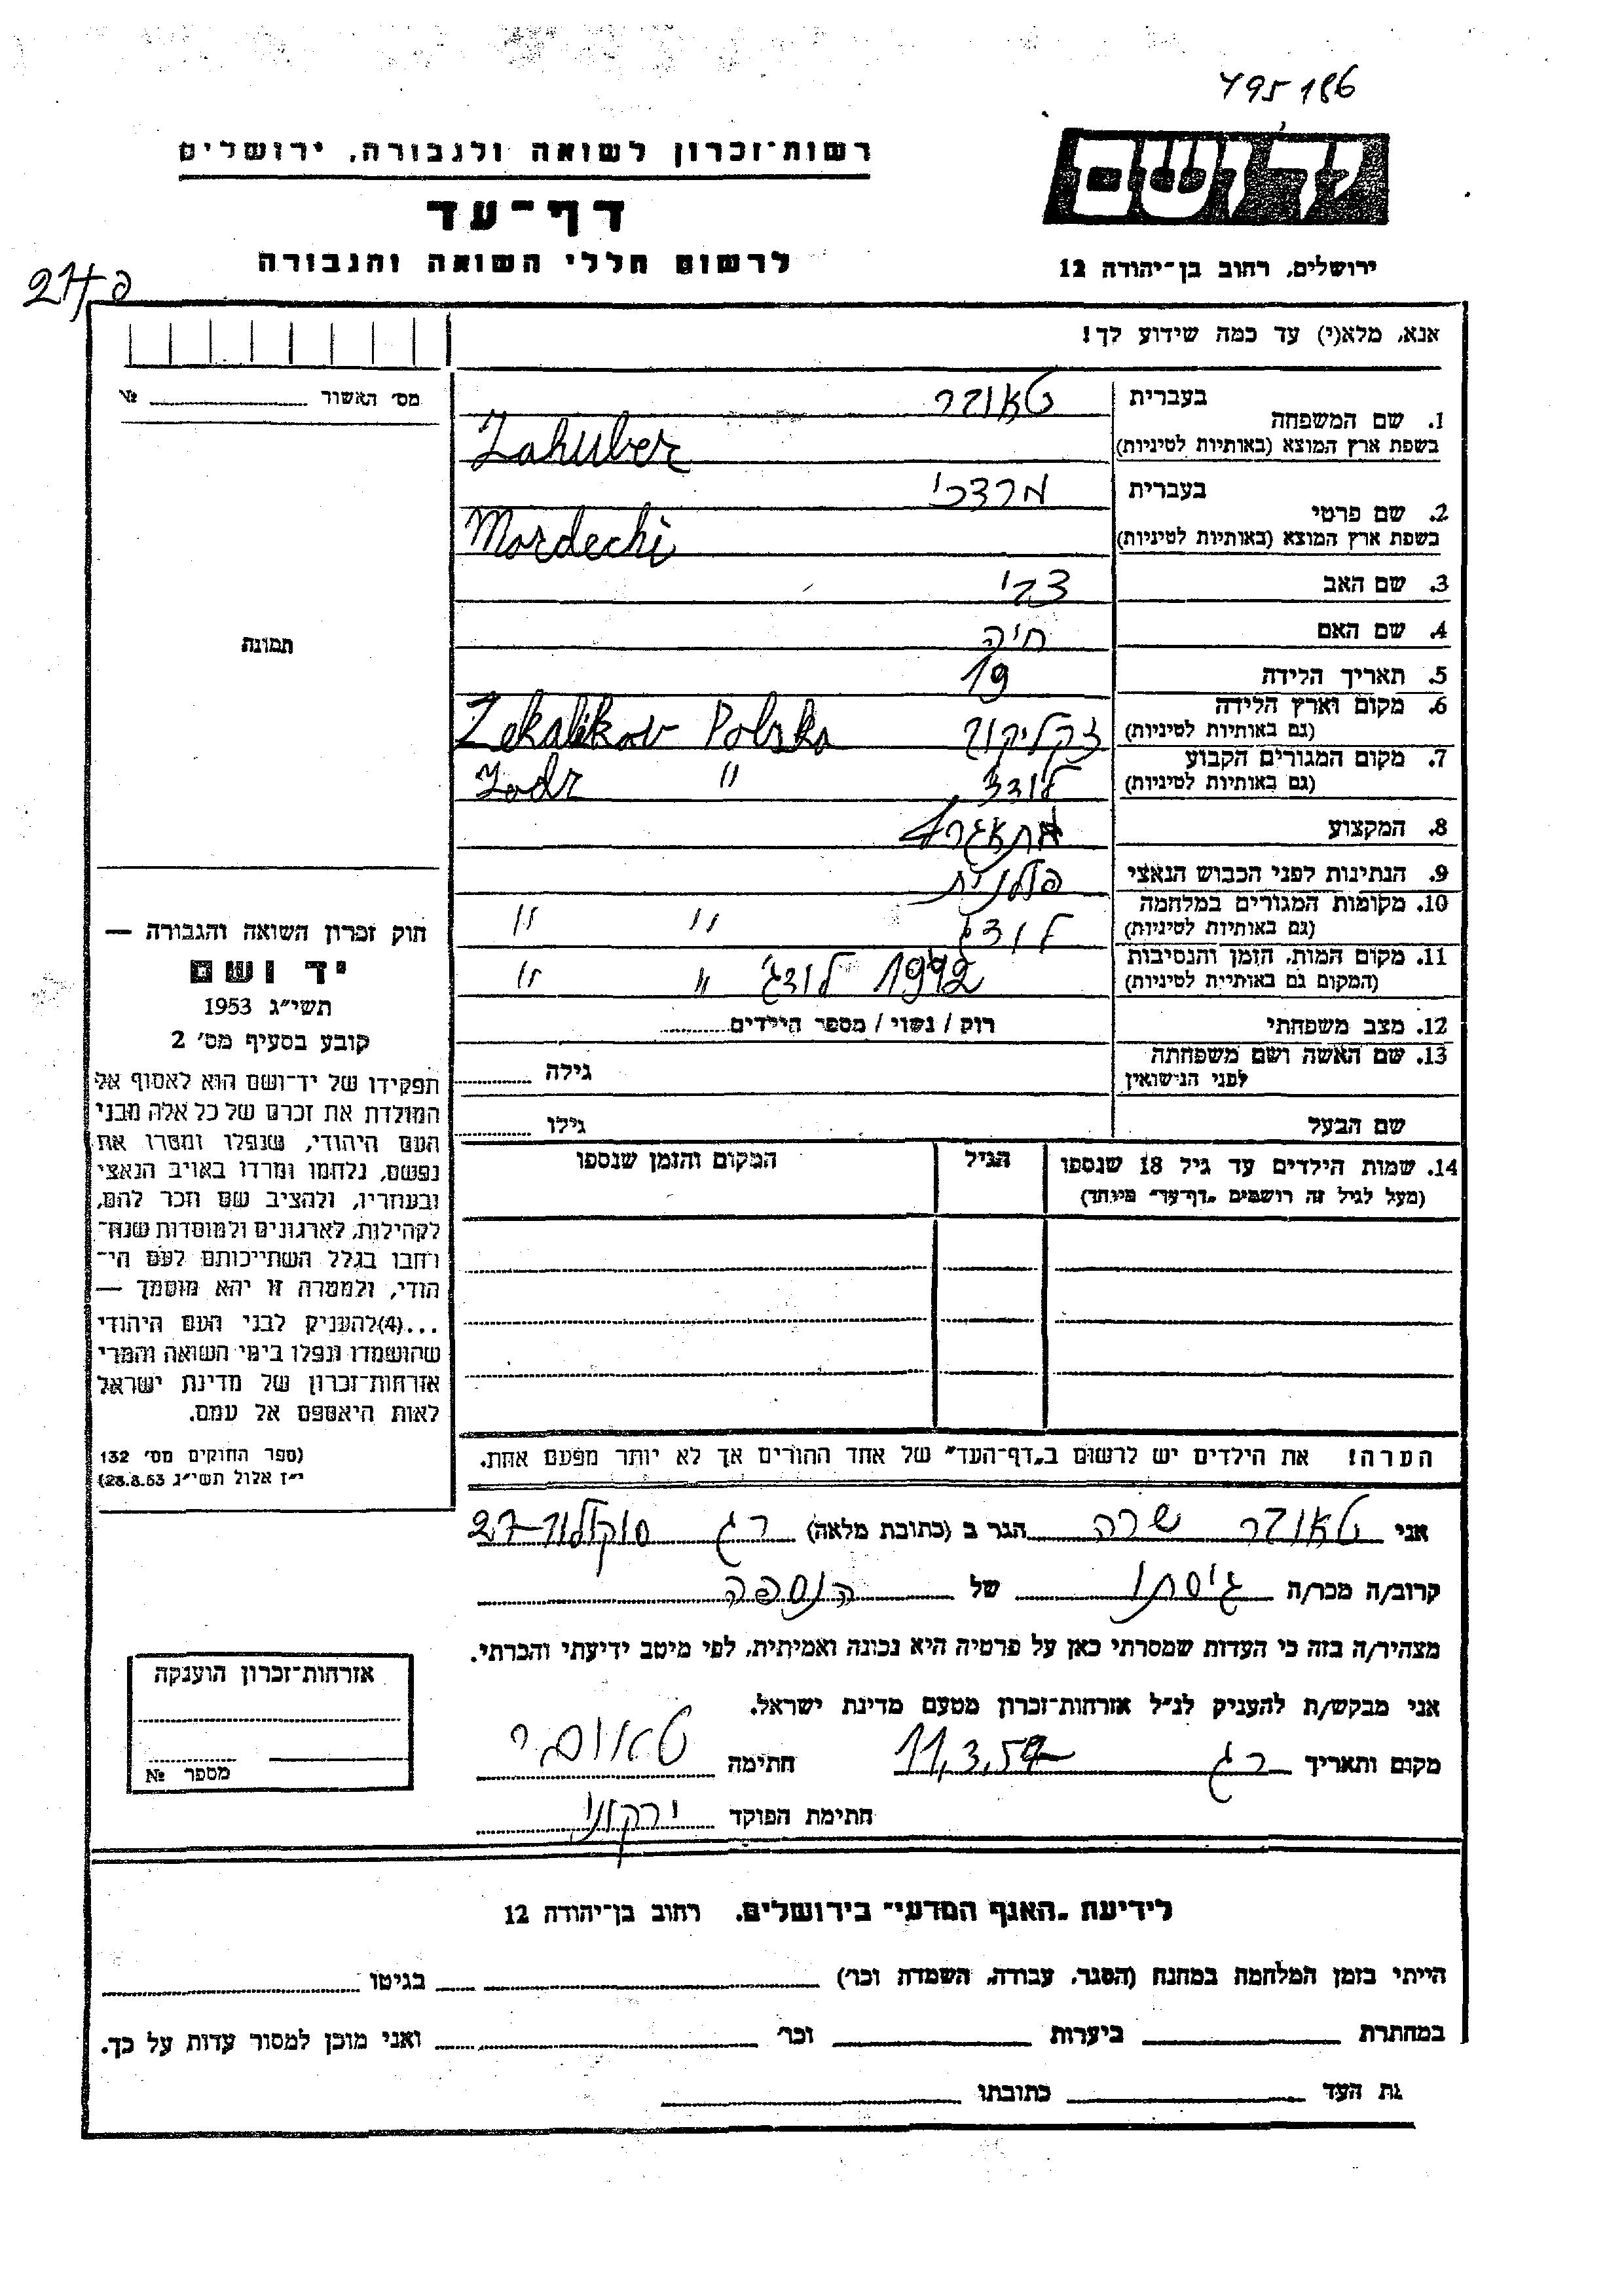 495186
רשות־זכרון לשואה ולגבורה, ירושלים
יד ושם
דף־עד
לרשום חללי השואה והגבורה
ירושלים, רחוב בן־יהודה 12
אנא, מלא(י) עד כמה שידוע לך!
מס׳ האשור №
1. שם המשפחה
בעברית
בשפת ארץ המוצא (באותיות לטיניות)
Zahuber
2. שם פרטי
בעברית מרדכי
בשפת ארץ המוצא (באותיות לטיניות)
Mordechi
3. שם האב צבי
4. שם האם חיה
תמונה
5. תאריך הלידה 19
6. מקום וארץ הלידה
(גם באותיות לטיניות) זקליקוב Zekalikov Polska
7. מקום המגורים הקבוע
(גם באותיות לטיניות) לודז Lodz "
8. המקצוע
9. הנתינות לפני הכבוש הנאצי פולנית
10. מקומות המגורים במלחמה
(גם באותיות לטיניות) לודז " "
11. מקום המות, הזמן והנסיבות
(המקום גם באותיות לטיניות) 1942 לודג׳ " "
12. מצב משפחתי רוק / נשוי / מספר הילדים
13. שם האשה ושם משפחתה
לפני הנישואין גילה
שם הבעל גילו
14. שמות הילדים עד גיל 18 שנספו הגיל המקום והזמן שנספו
(מעל לגיל זה רושמים „דף־עד״ מיוחד)
חוק זכרון השואה והגבורה —
יד ושם
תשי״ג 1953
קובע בסעיף מס׳ 2
תפקידו של יד־ושם הוא לאסוף אל
המולדת את זכרם של כל אלה מבני
העם היהודי, שנפלו ומסרו את
נפשם, נלחמו ומרדו באויב הנאצי
ובעוזריו, ולהציב שם וזכר להם,
לקהילות, לארגונים ולמוסדות שנח־
רבו בגלל השתייכותם לעם הי־
הודי, ולמטרה זו יהא מוסמך —
...(4)להעניק לבני העם היהודי
שהושמדו ונפלו בימי השואה והמרי
אזרחות־זכרון של מדינת ישראל
לאות היאספם אל עמם.
(ספר החוקים מס׳ 132
י״ז אלול תשי״ג 28.8.53)
הערה! את הילדים יש לרשום ב„דף־העד״ של אחד ההורים אך לא יותר מפעם אחת.
אני שרה הגר ב (כתובת מלאה) רג סוקולוב 27
קרוב/ה מכר/ה גיסתו של הנספה
מצהיר/ה בזה כי העדות שמסרתי כאן על פרטיה היא נכונה ואמיתית, לפי מיטב ידיעתי והכרתי.
אני מבקש/ת להעניק לנ״ל אזרחות־זכרון מטעם מדינת ישראל.
מקום ותאריך רג 11.3.57 חתימה
חתימת הפוקד ירקוני
אזרחות־זכרון הוענקה
מספר №
לידיעת „האגף המדעי״ בירושלים. רחוב בן־יהודה 12
הייתי בזמן המלחמה במחנה (הסגר, עבודה, השמדה וכר׳) בגיטו
במחתרת ביערות וכר׳ ואני מוכן למסור עדות על כך.
שם העד כתובתו